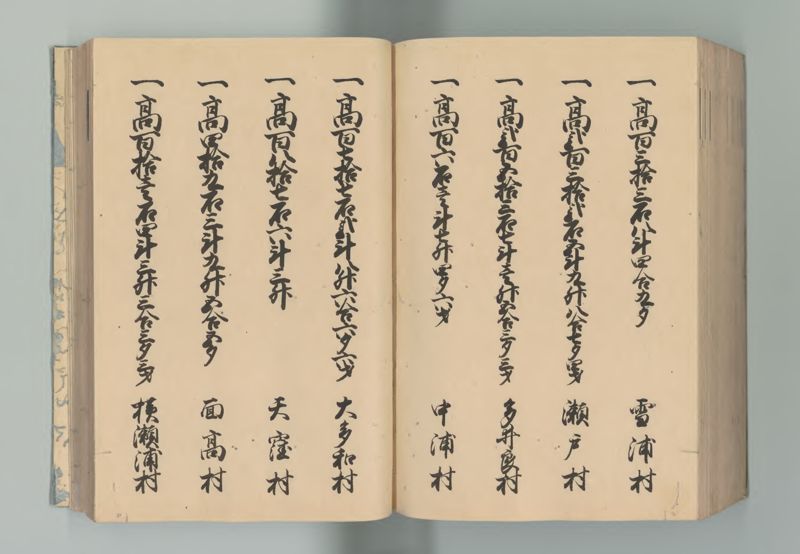 一高百三拾三石八斗四合九夕 雪浦村
一高弐百三拾弐石四斗九升八合七夕四才 瀬戸村
一高弐百五拾三石七斗壱升五合三夕三才 多井良村
一高百六石壱斗七升四夕六才 中浦村
一高百七拾七石弐斗八升六合六夕六才 大多和村
一高百八拾七石六斗三升 天窪村
一高四拾九石三斗九升五合五夕 面高村
一高百拾壱石四斗三升三合三夕三才 横瀬浦村